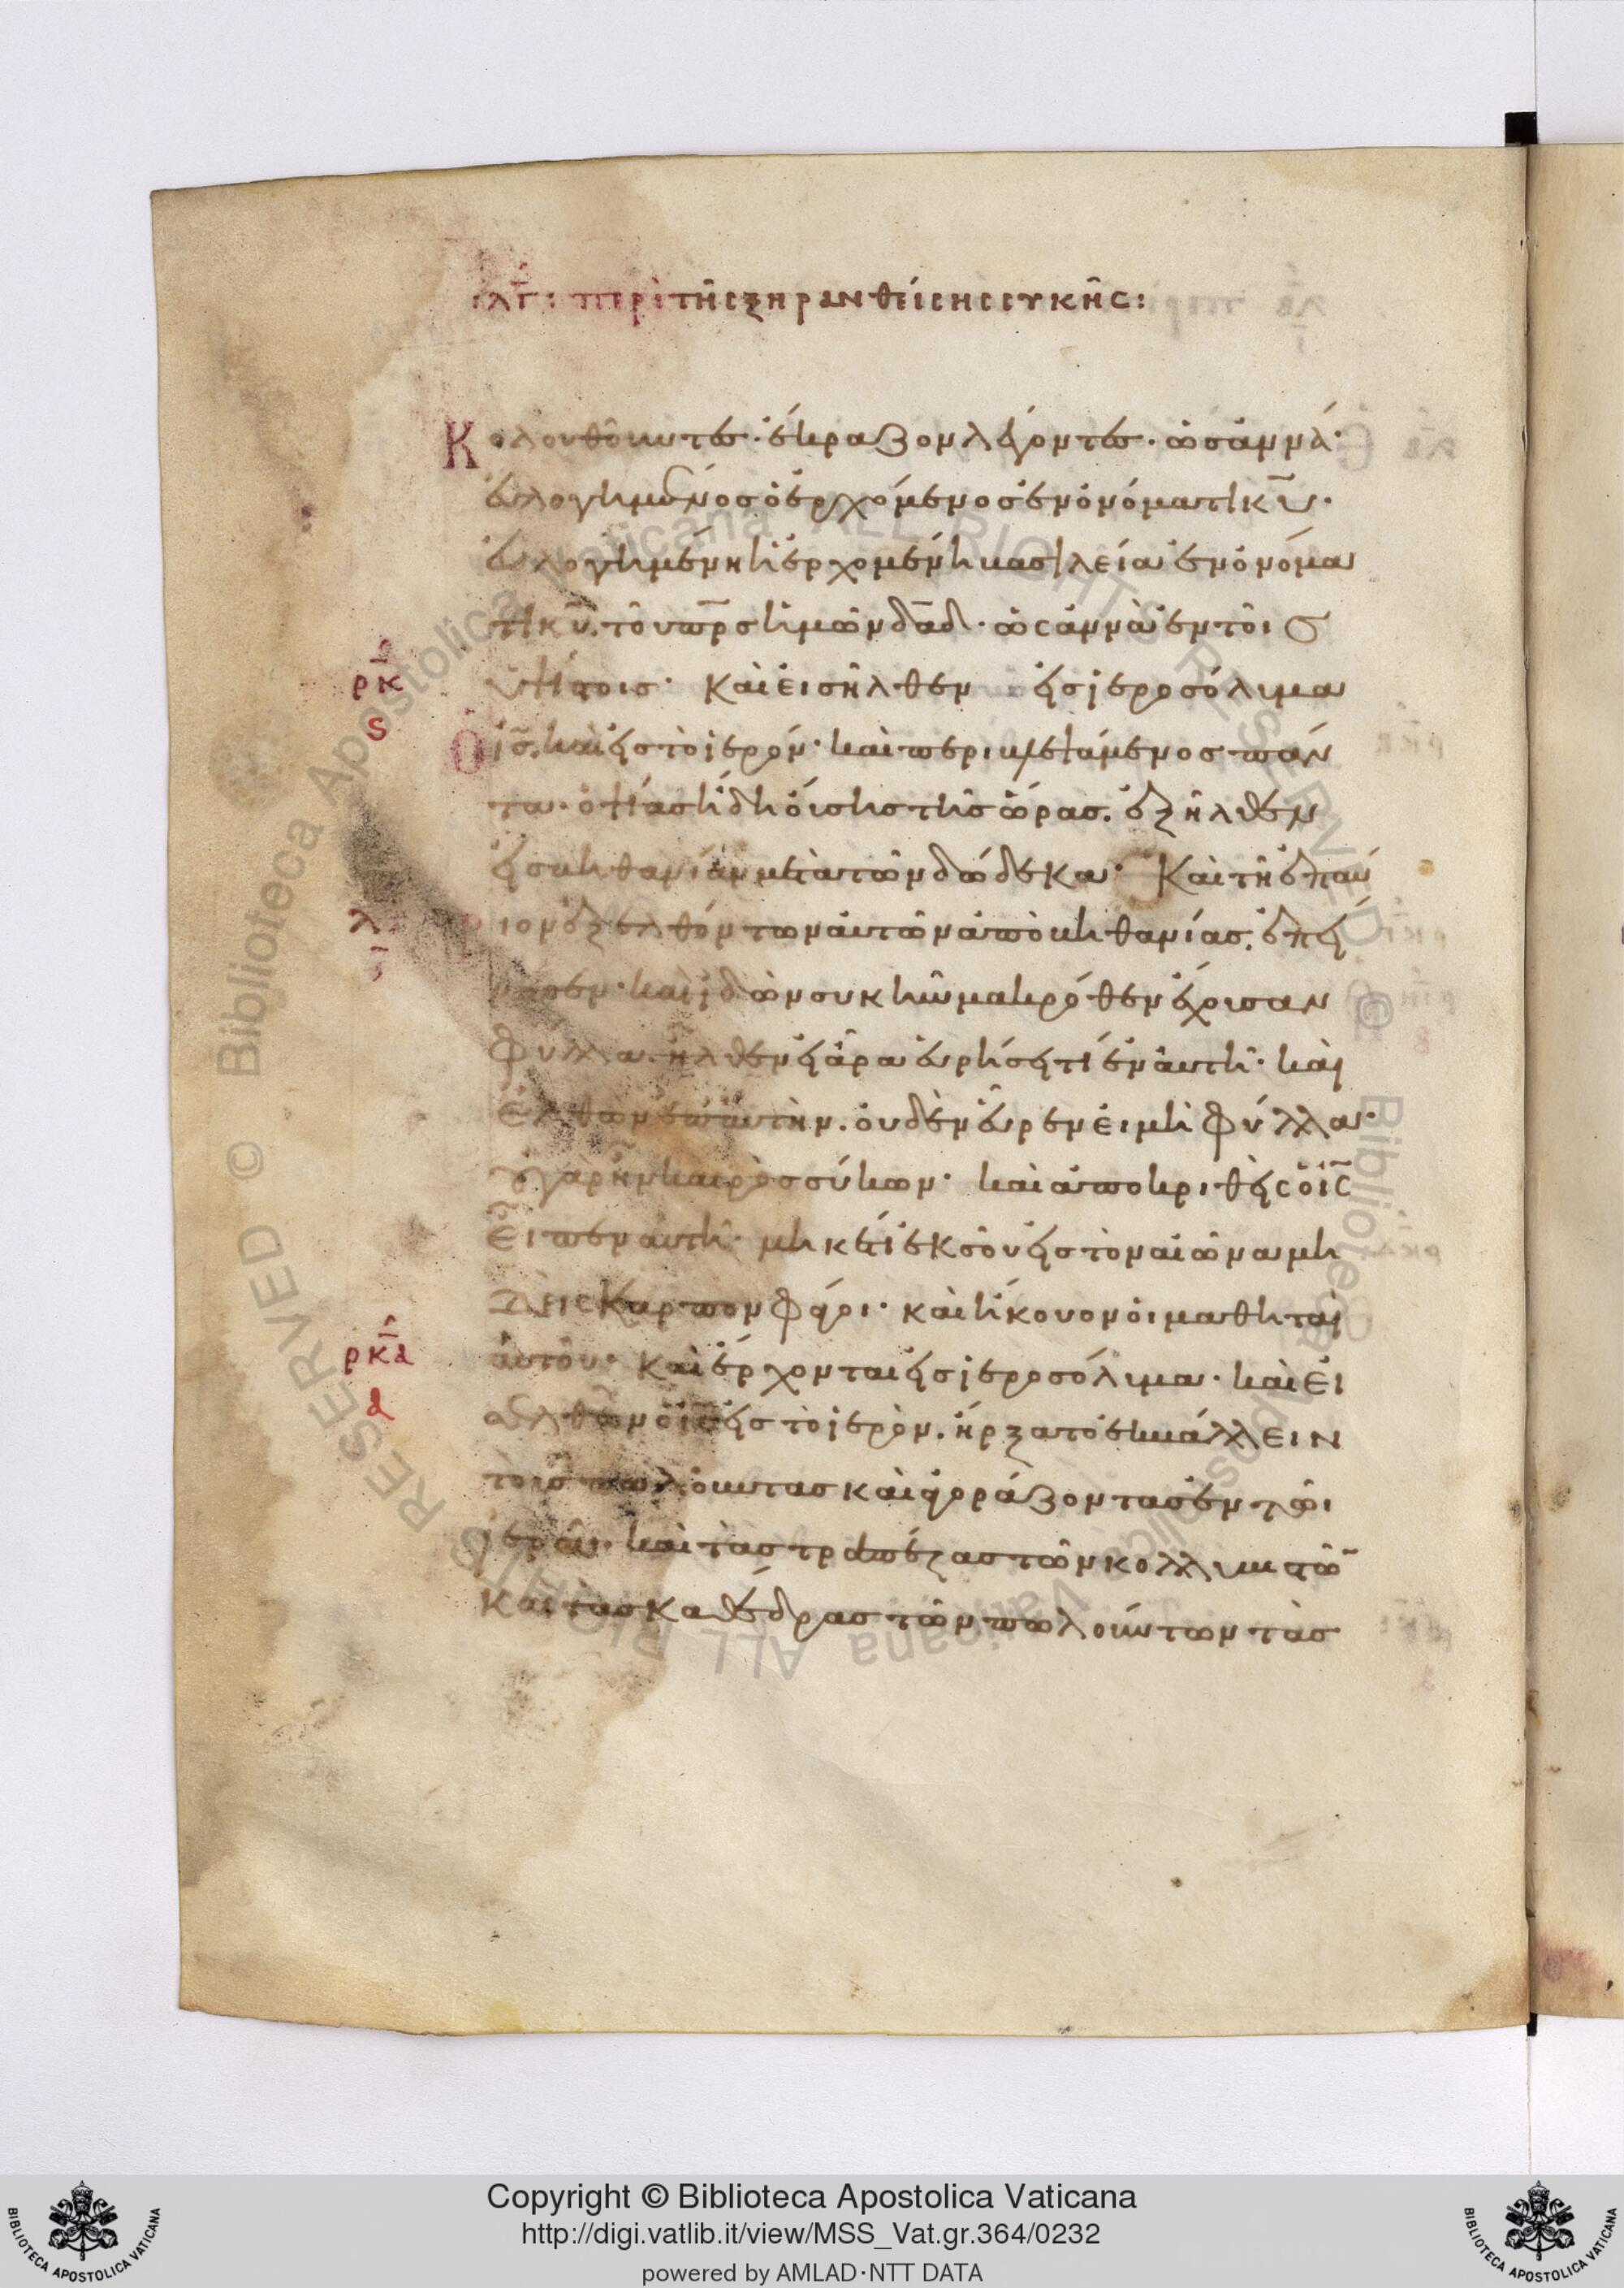 λγ: περὶ τῆς ξηρανθείσης συκῆς:
κολουθοῦντες· ἔκραζον λέγοντες· ὡσαννά·
εὐλογημένος ὁ ἐρχόμενος ἐν ὀνόματι κ̅υ̅·
εὐλογημένη ἡ ἐρχομένη βασιλεία ἐν ὀνόμα
τι κ̅υ̅. τοῦ π̅ρ̅ς ἡμῶν δ̅α̅δ̅· ὡσαννὰ ἐν τοῖσ
ρκ
ὑψίστοις· Καὶ εἰσῆλθεν εἰς ἱεροσόλυμα
ς
ὁ ι̅ς̅. καὶ εἰς τὸ ἱερόν· καὶ περιβλεψάμενος πάν
τα· ὀψίας ἤδη οὔσης τῆς ὥρας. ἐξῆλθεν
εἰς βηθανίαν μετὰ τῶν δώδεκα· Καὶ τῇ ἐπαύ
λγ
ριον ἐξελθόντων αὐτῶν ἀπὸ βηθανίας. ἐπεί
νασεν· καὶ ἰδὼν συκῆν μακρόθεν ἔχουσαν
φύλλα. ἦλθεν εἰ ἄρα εὑρήσει τί ἐν αὐτῇ· καὶ
ἐλθὼν ἐπ' αὐτὴν. οὐδὲν εὗρεν εἰ μὴ φύλλα·
οὐ γὰρ ἦν καιρὸς σύκων· καὶ ἀποκριθεὶς ὁ ι̅ς̅
εἶπεν αὐτῇ· μηκέτι ἐκ σοῦ εἰς τὸν αἰῶνα μη
δεὶς καρπὸν φάγοι· καὶ ἤκουον οἱ μαθηταὶ
ρκα
αὐτοῦ· Καὶ ἔρχονται εἰς ἱεροσόλυμα· καὶ εἰ
α
σελθὼν ὁ ι̅ς̅ εἰς τὸ ἱερὸν. ἤρξατο ἐκβάλλειν
τοὺς πωλοῦντας καὶ ἀγοράζοντας ἐν τῶι
ἱερῶι. καὶ τὰς τραπέζας τῶν κολλυβιστῶ̅
καὶ τὰς καθέδρας τῶν πωλούντων τὰς
Copyright © Biblioteca Apostolica Vaticana
http://digi.vatlib.it/view/MSS_Vat.gr.364/0232
powered by AMLAD·NTT DATA